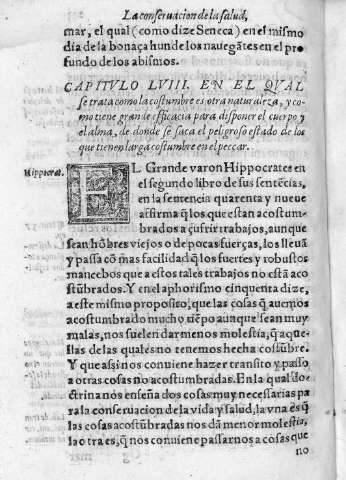 La conseruacion de la salud,
mar, el qual (como dize Seneca) en el mismo
dia de la bonaça hunde los nauegãtes en el pro
fundo de los abismos.
CAPITVLO LVIII. EN EL QVAL
se trata como la costumbre es otra naturaleza, y co-
mo tiene grande efficacia para disponer el cuerpo y
el alma, de donde se saca el peligroso estado de los
que tienen larga costumbre en el peccar.
Hippocra.
EL Grande varon Hippocrates en
el segundo libro de sus sentẽcias,
en la sentencia quarenta y nueue
affirma q̃ los que estan acostum-
brados a çufrir trabajos, aunque
sean hõbres viejos o de pocas fuerças, los lleuã
y passa cõ mas facilidad q̃ los fuertes y robustos
mancebos que a estos tales trabajos no estã aco
stũbrados. Y en el aphorismo cinquenta dize,
a este mismo proposito, que las cosas q̃ auemos
acostumbrado mucho tiẽpo aunque sean muy
malas, nos suelen dar menos molestia, q̃ aque-
llas de las quales no tenemos hecha costũbre.
Y que assi nos conuiene hazer transito y passo
a otras cosas no acostumbradas. En la qual do-
ctrina nos enseña dos cosas muy necessarias pa
ra la conseruacion de la vida y salud, la vna es q̃
las cosas acostũbradas nos dã menor molestia,
la otra es, q̃ nos conuiene passarnos a cosas que
no